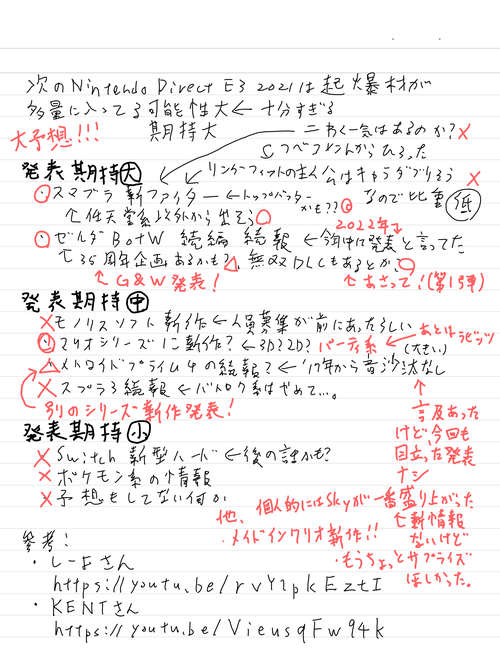 次のNintendo Direct E3 2021は起爆材が
多量に入ってる可能性大←十分すぎる
期待大
大予想!!!
ニわく一気はあるのか?×
つべコメントからひろった
発表期待大
リングフィットの主人公はキャラかぶりそう ×
○・スマブラ 新ファイター ←トップバッターかも??○
なので比重低
↑任天堂系以外から出そう○
2022年↓
○・ゼルダBotW 続編 続報 ←今年中に発表と言ってた
↑35周年企画あるかも?△、無双DLCもあるとか?○
↑G&W発表!
↑あさって!(第1弾)
発表期待中
×モノリスソフト 新作←人員募集が前にあったらしい
○・マリオシリーズに新作?←3D?2D? パーティ系
←あとはラビッツ
(大きい)
△・メトロイドプライム4の続報?←'17年から音沙汰なし
×・スプラ3続報←バトロワ系はやめて…。
別のシリーズ新作発表!
↑
言及あった
けど、今回も
目立った発表
ナシ
発表期待小
×・Switch 新型ハード←後の誰かも?
×・ポケモン系の情報
×・予想もしてない何か
他、個人的にはSkyが一番盛り上がった
↑新情報
ないけど
・メイドインワリオ新作!!
・もうちょっとサプライズ
ほしかった。
参考!
・しーぷさん
https://youtu.be/rvYzpkEztI
・KENTさん
https://youtu.be/VieusqFw94k